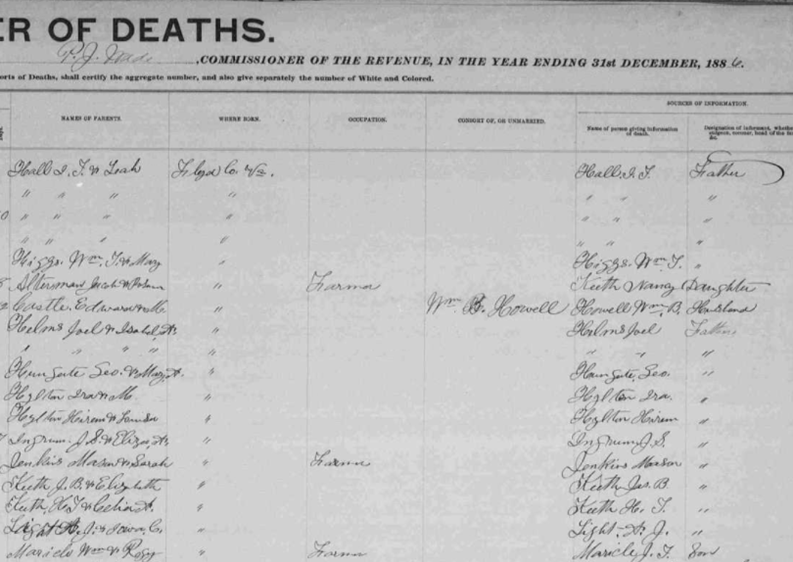 ER OF DEATHS.
P. J. Wade, COMMISSIONER OF THE REVENUE, IN THE YEAR ENDING 31st DECEMBER, 1886.
orts of Deaths, shall certify the aggregate number, and also give separately the number of White and Colored.
SOURCES OF INFORMATION.
NAMES OF PARENTS. WHERE BORN. OCCUPATION. CONSORT OF, OR UNMARRIED. Name of person giving information of death. Designation of informant, whether
Hall I. T. & Leah Floyd Co. Va. Hall I. T. Father
" " " " " " "
" " " " " " "
" " " " " " "
Higgs Wm. T. & Mary " Higgs Wm. T. "
Alterman Jacob & " Farmer Keith Nancy Daughter
Castle Edward & M. " Wm. B. Howell Howell Wm. B. Husband
Helms Joel & Isabel A. " Helms Joel Father
" " " " " " " "
Hungate Geo. & Mary A. " Hungate Geo. "
Hylton Ira & M. " Hylton Ira. "
Hylton Hiram & " Hylton Hiram "
Ingrum J. S. & Eliza A. " Ingrum J. S. "
Jenkins Mason & Sarah " Farmer Jenkins Mason "
Keith J. B. & Elizabeth " Keith Jas. B "
Keith H. T. & Celia A. " Keith H. T. "
Light A. J. & " Light A. J. "
Maricle Wm & " Farmer Maricle J. T. Son